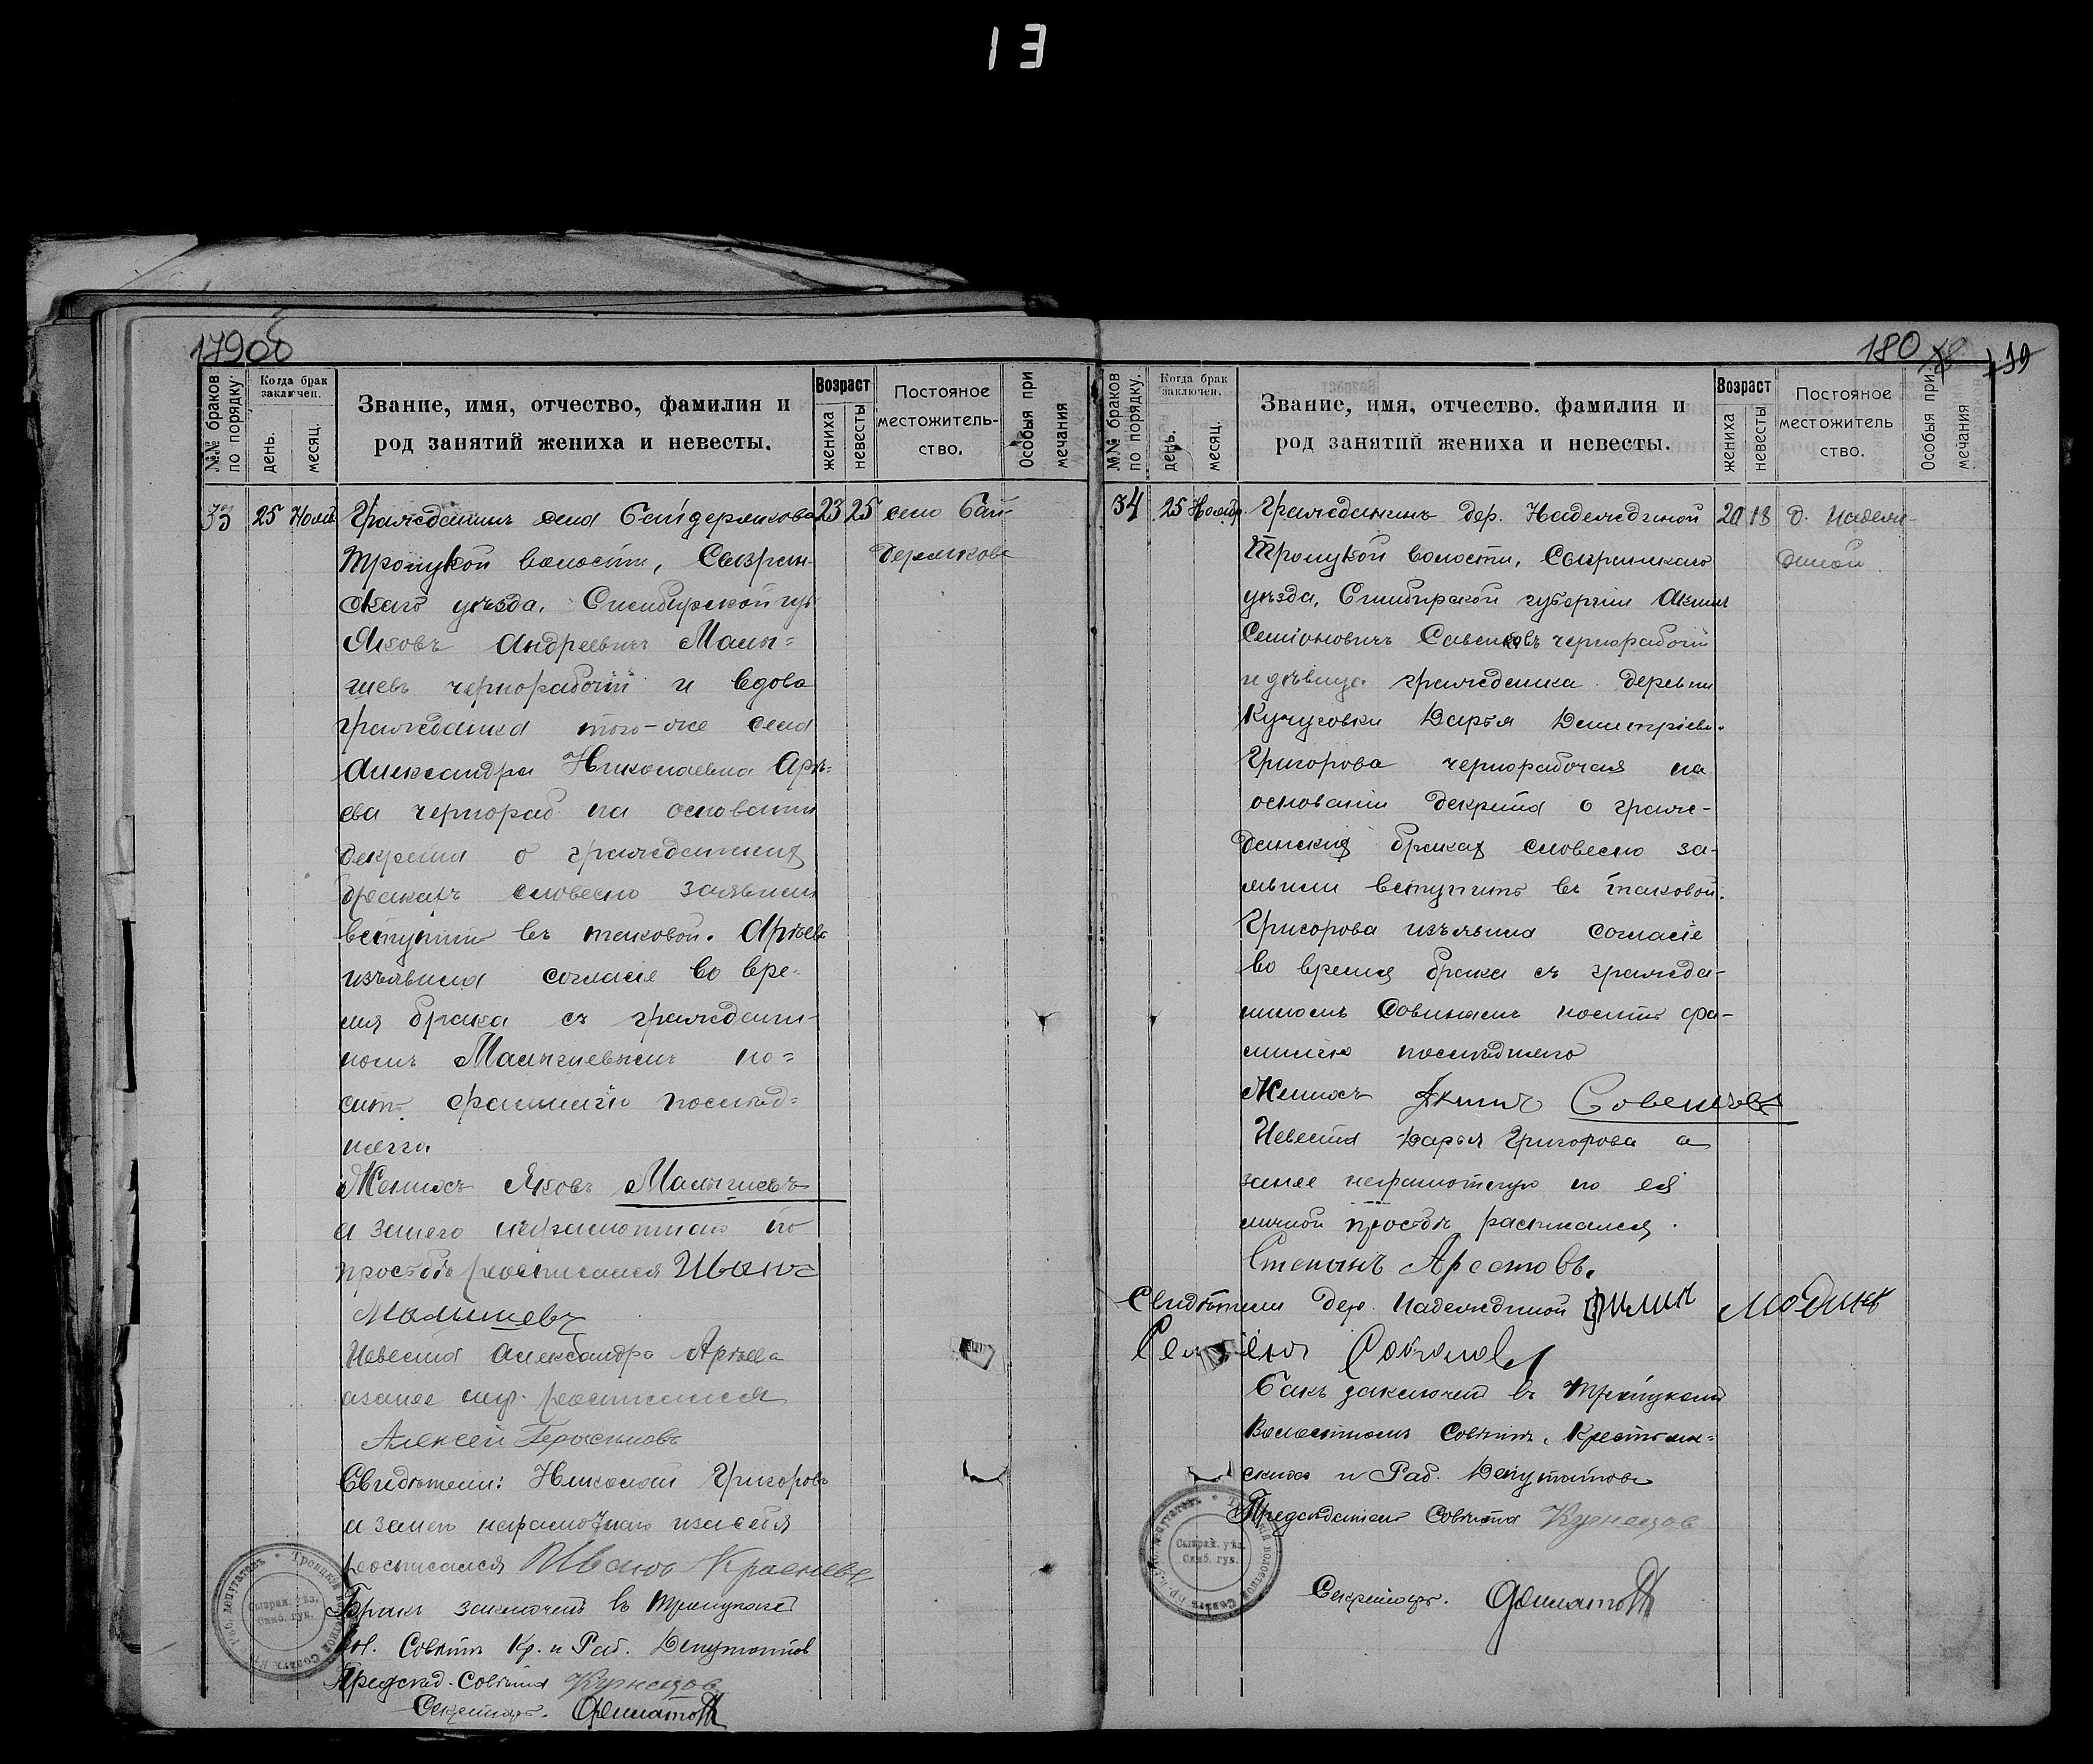 13
№№ браков по порядку.
Когда брак заключен.
день.
месяц.
Звание, имя, отчество, фамилия и
род занятий жениха и невесты.
Возраст
жениха
невесты
Постояное
местожитель-
ство.
Особыя при
мечания
33 25 Нояб Гражданинъ села Байдерякова 23 25 село Бай-
Троицкой волости, Сызран- дерякова
скаго уѣзда, Симбирской губ
Яковъ Андреевичъ Малы=
гиевъ чернорабочій и вдова
гражданка того-же села
Александра Николаевна Арѣ=
ева чернораб на основаніи
декрета о гражданских
бракахъ словесно заявили
вступить въ таковой. Арѣева
изъявила согласіе во вре-
мя брака съ граждани-
номъ но=
сить фамилію послѣд=
няго
Женихъ Яковъ
а занего неграмотнаго по
просьбѣ росписался Иванъ
Малышевъ
Невеста Александра Арѣева
азанее негр. росписался
Алексей Герасимовъ
Свидѣтели: Николай Григоровъ
а занего неграмотнаго изасебя
росписался Иванъ
Бракъ заключенъ въ Троицкомъ
Вол. Совѣтѣ Кр. и Раб. Депутатов
Председ. Совѣта Кузнецов
Секретарь.
180
№№ браков по порядку.
Когда брак заключен.
день.
месяц.
Звание, имя, отчество, фамилия и
род занятий жениха и невесты.
Возраст
жениха
невесты
Постояное
местожитель
ство.
Особыя при
мечания
34 25 Ноябр. Гражданинъ дер. Надеждиной 20 18 д. Надеж-
Троицкой волости, Сызранскаго диной
уѣзда, Симбирской губерніи Акимъ
Семіоновичъ чернорабочій
и дѣвица гражданка деревни
Кучуговки Дарья Димитріевн.
Григорова чернорабочая на
основаніи декрета о граж-
данских браках словесно за-
явили вступить въ таковой.
Григорова изъявила согласіе
во время брака съ гражда-
ниномъ носить фа-
милію послѣдняго
Женихъ Акимъ
Невеста Дарья Григорова а
занее неграмотную по ея
личной просьбѣ расписался.
Степанъ
Свидѣтели дер. Надеждиной
заключенъ въ Троицкомъ
Волостномъ Совѣтѣ, Крестьян=
скихъ и Раб. Депутатовъ
Председатель Совѣта Кузнецов
Секретарь.